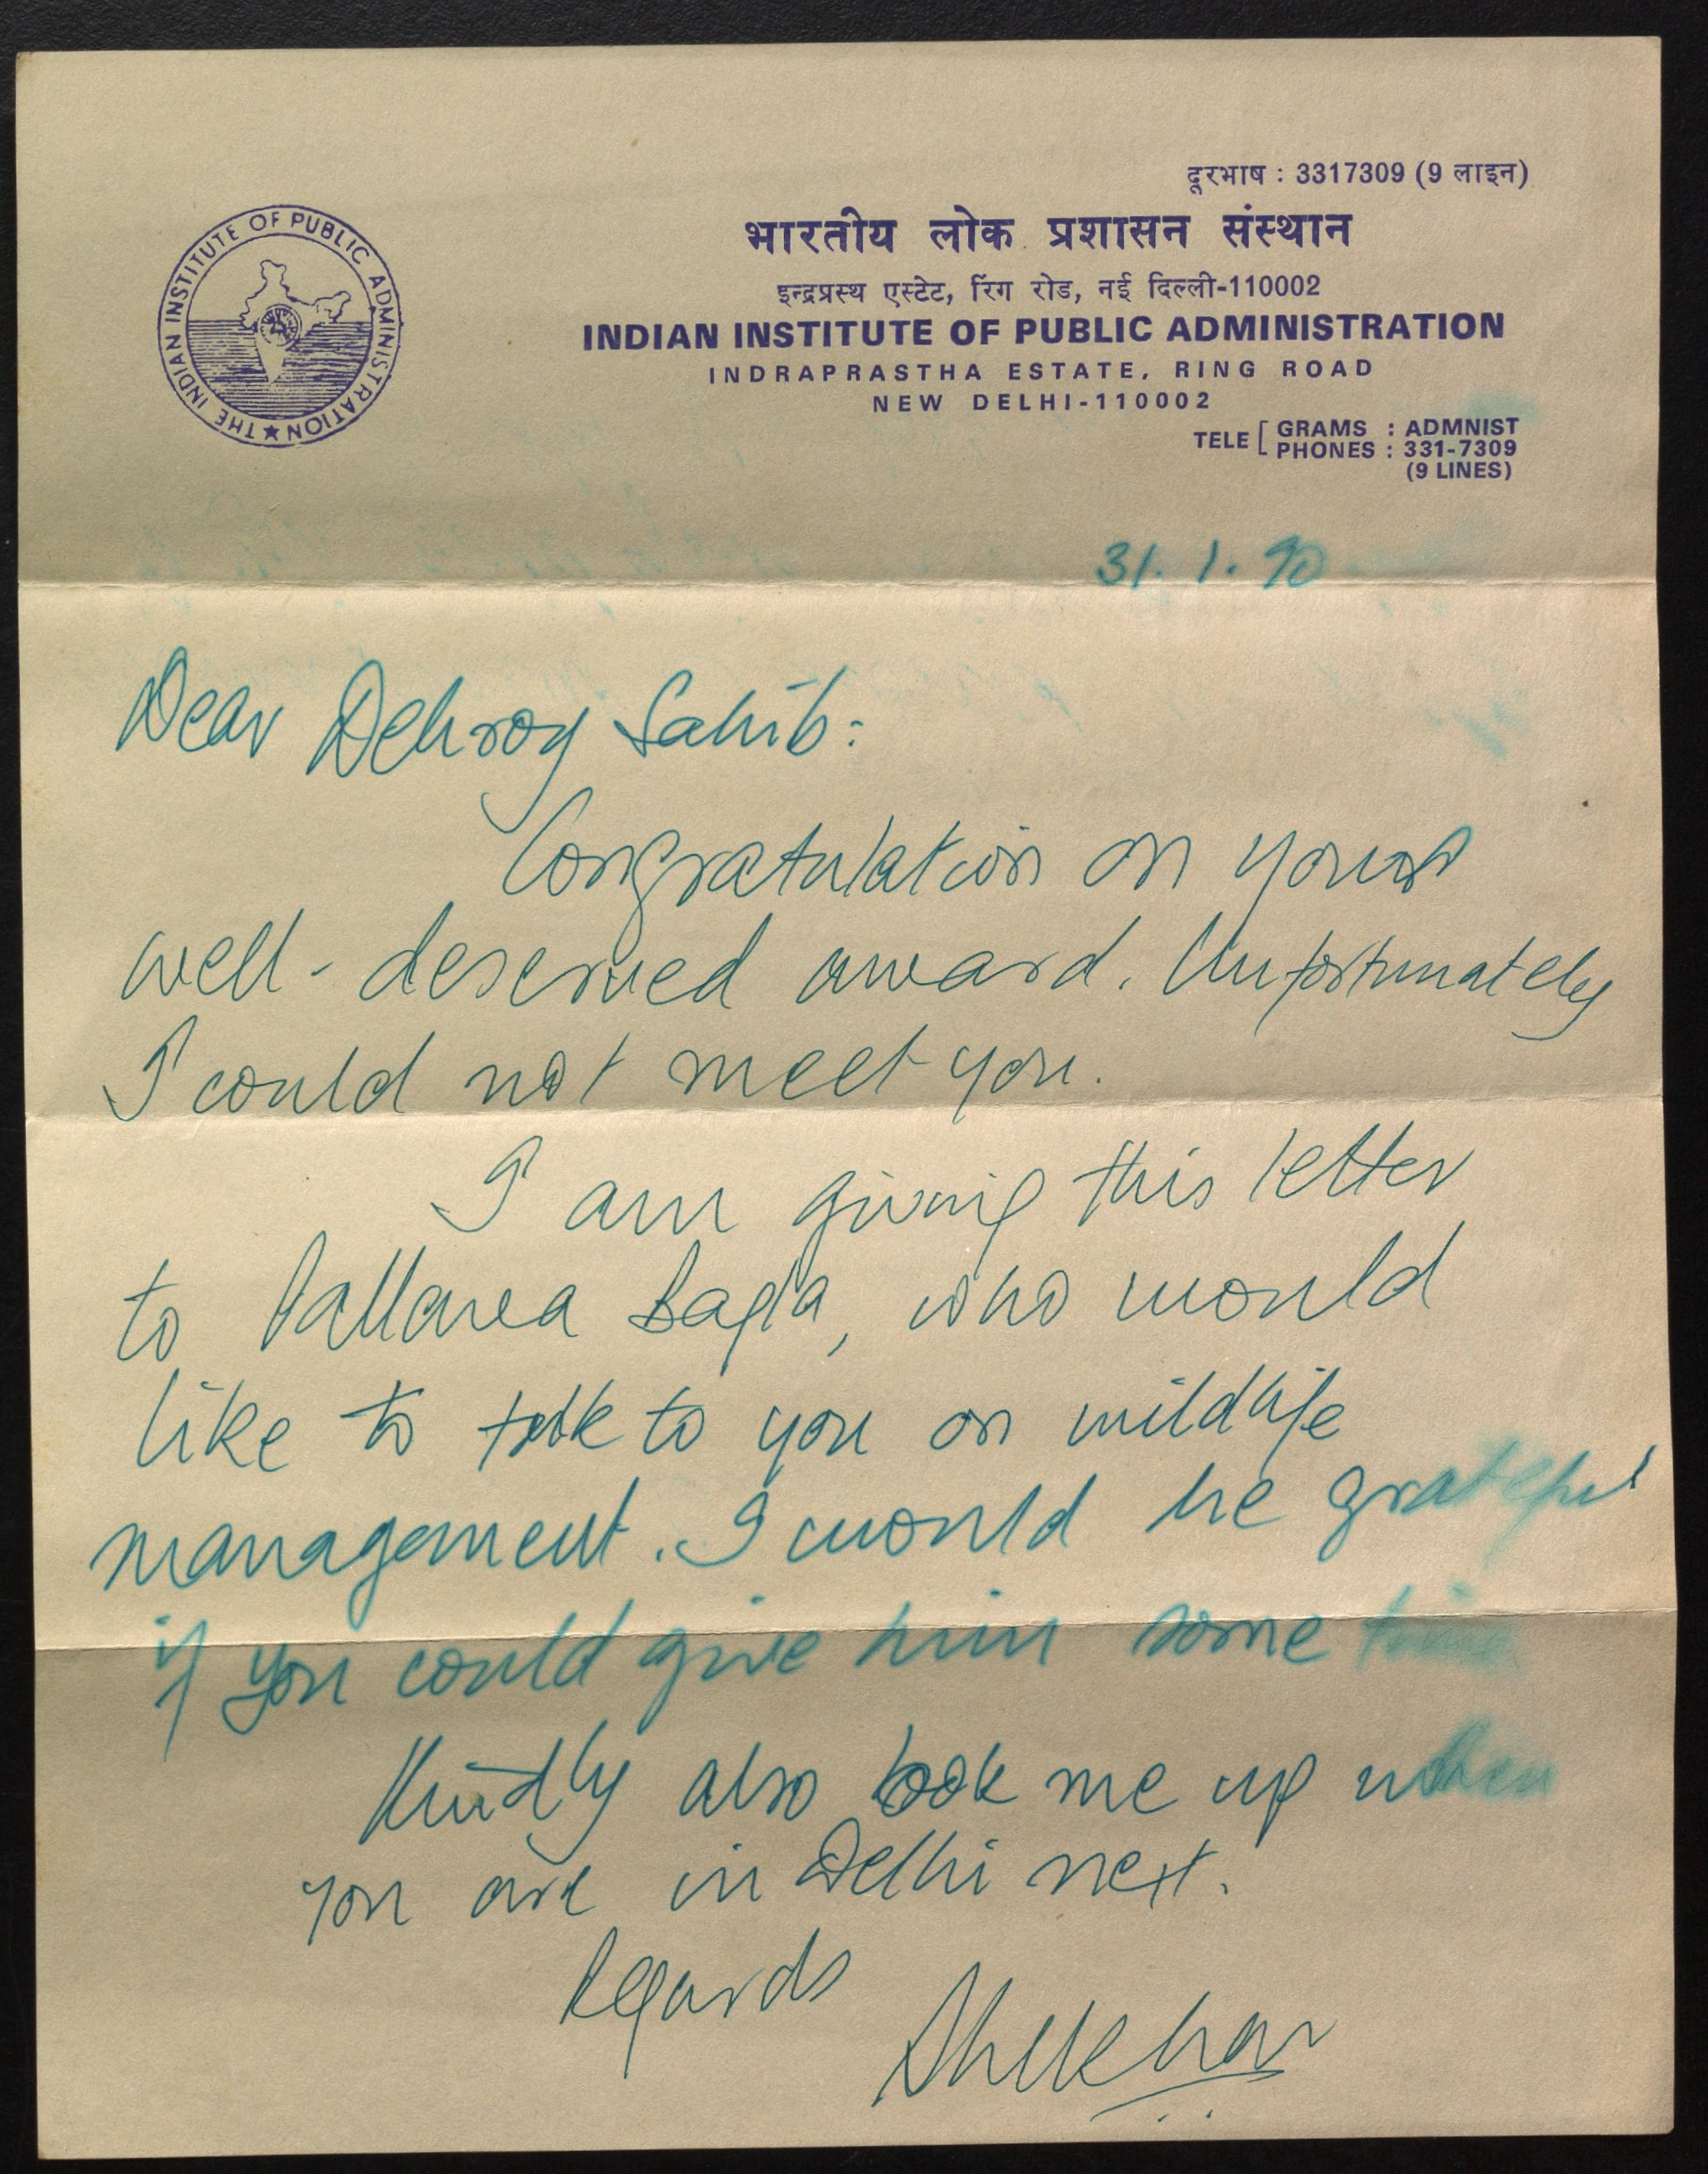 दूरभाष : 3317309 (9 लाइन)
भारतीय लोक प्रशासन संस्थान
इन्द्रप्रस्थ एस्टेट, रिंग रोड, नई दिल्ली-110002
INDIAN INSTITUTE OF PUBLIC ADMINISTRATION
INDRAPRASTHA ESTATE, RING ROAD
NEW DELHI-110002
TELE [ GRAMS : ADMNIST
PHONES : 331-7309
(9 LINES)
THE INDIAN INSTITUTE OF PUBLIC ADMINISTRATION
31.1.90
Dear Debroy Sahib:
Congratulation on your
well-deserved award. Unfortunately
I could not meet you.
I am giving this letter
to Pallava Bagla, who would
like to talk to you on wildlife
management. I would be grateful
if you could give him some time
Kindly also look me up when
you are in Delhi next.
Regards
Shekhar